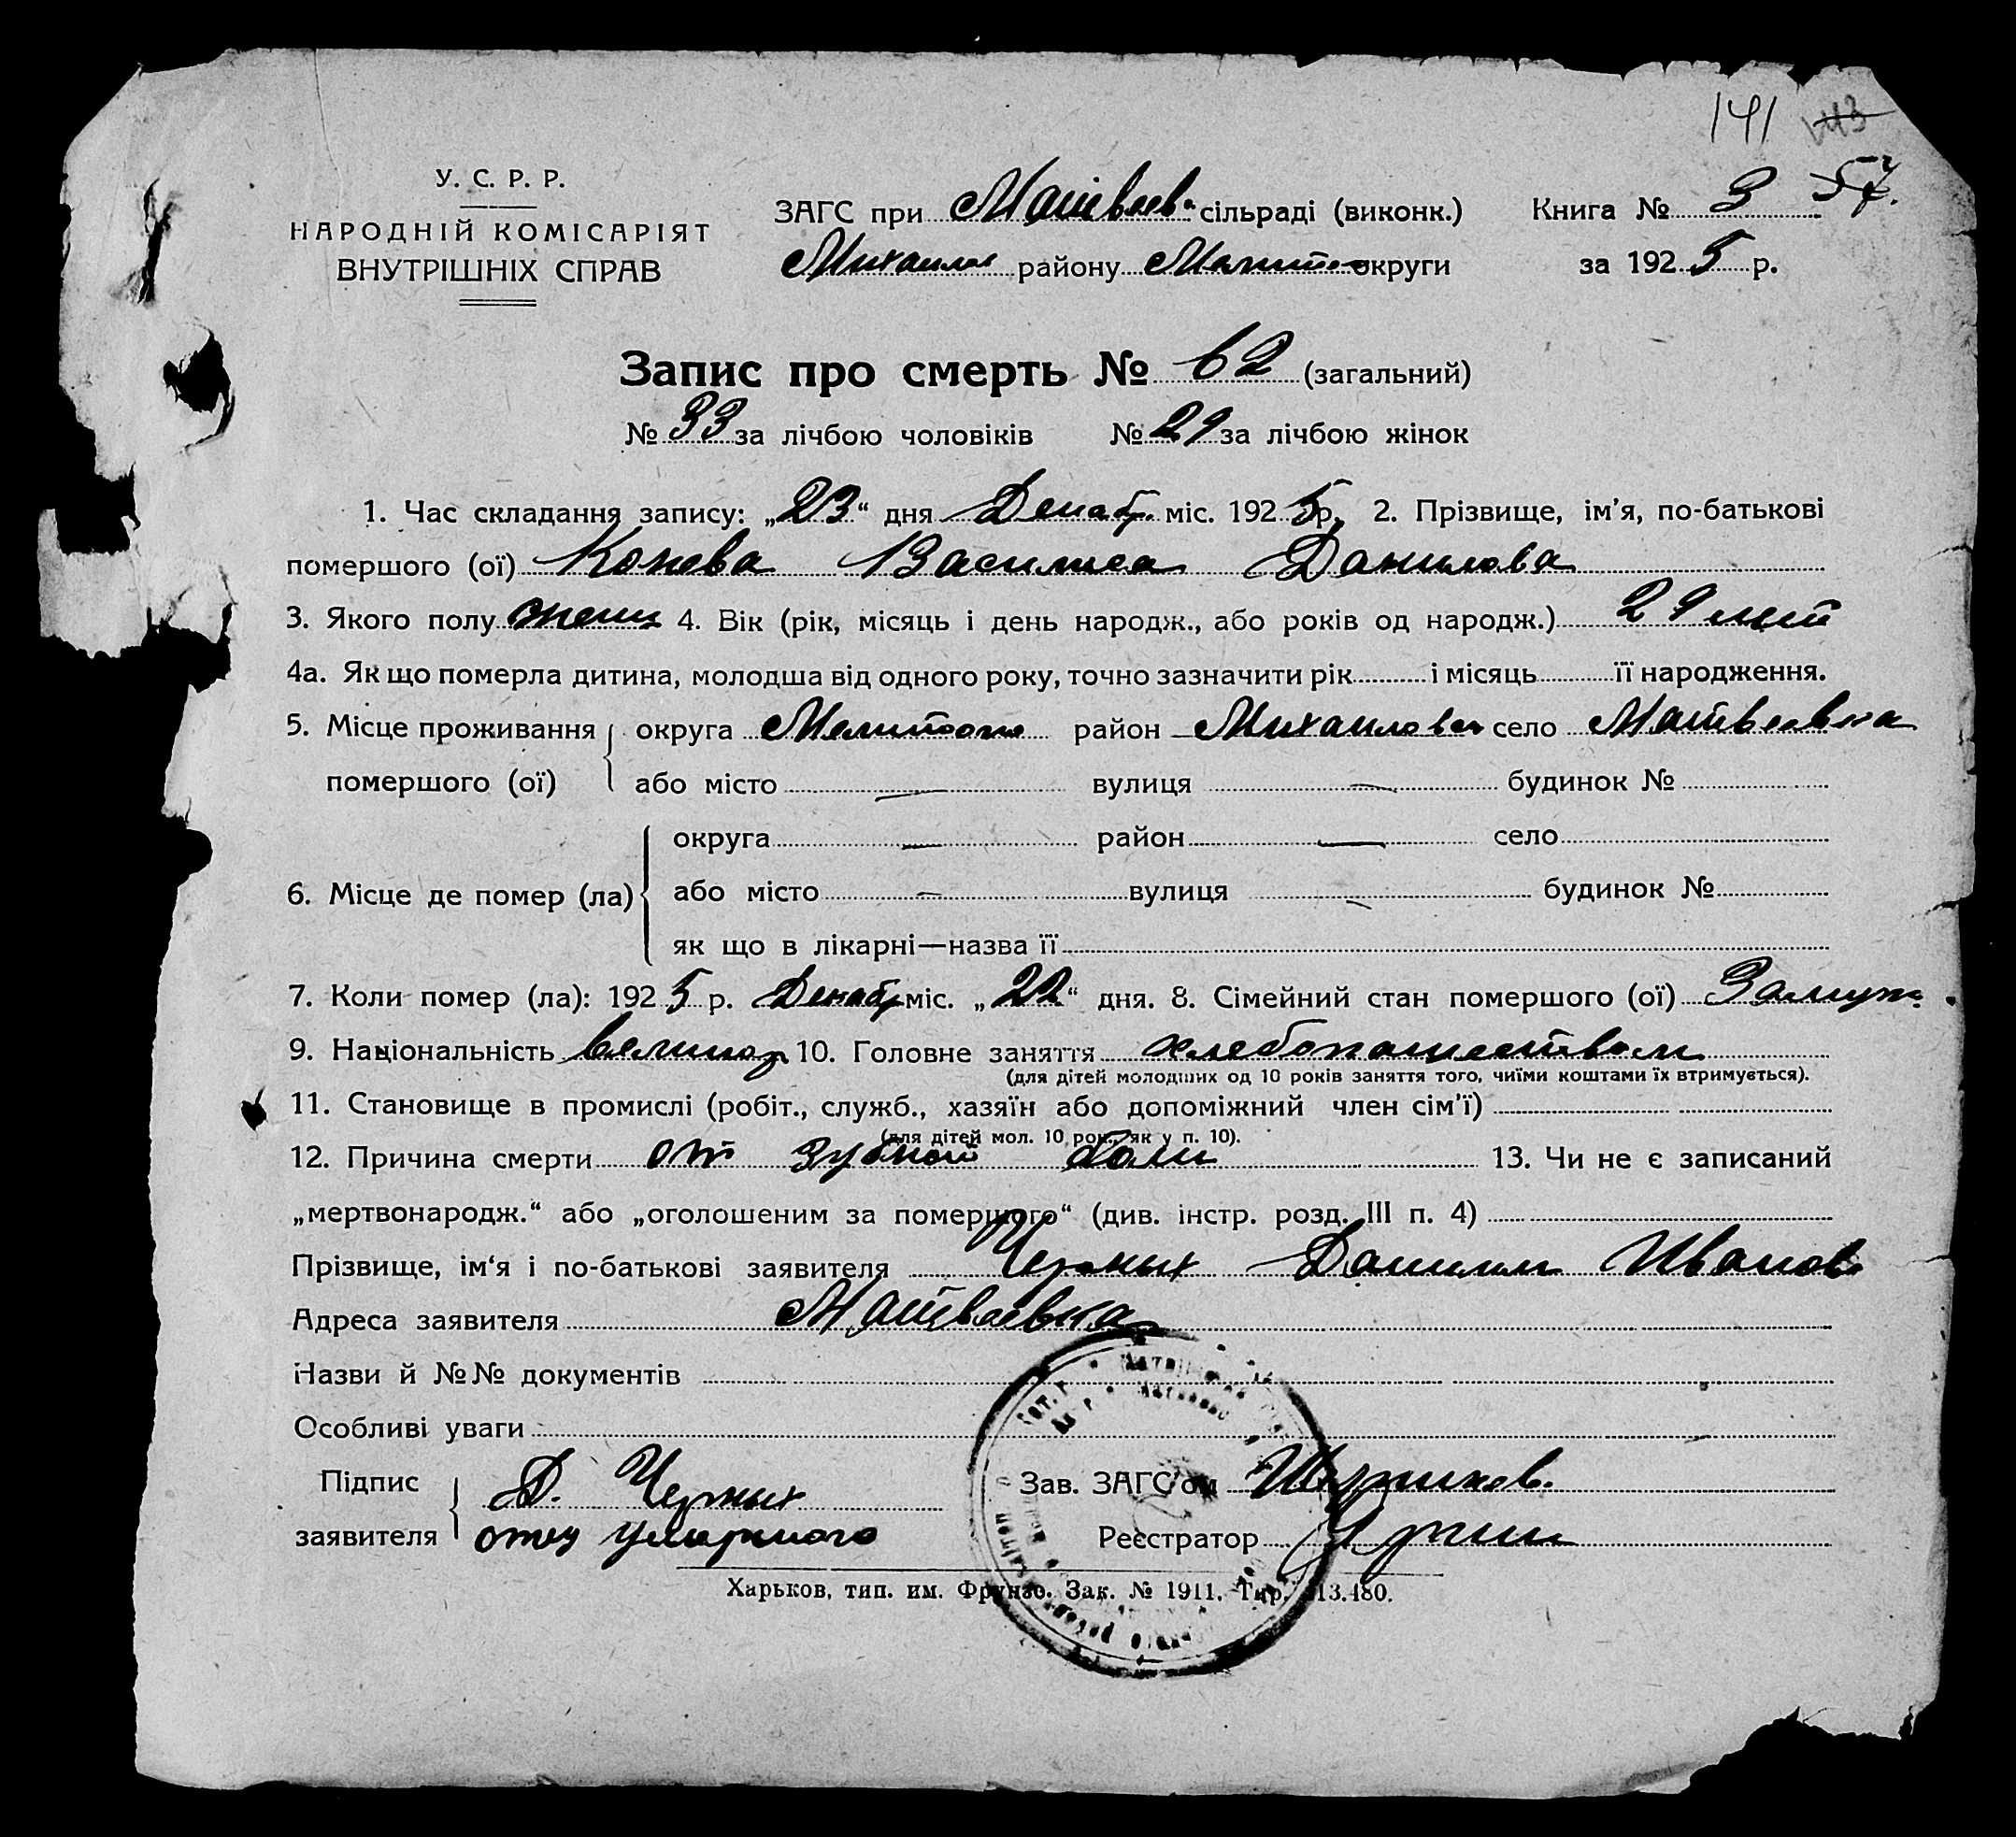 141 143
У. С. Р. Р.
НАРОДНІЙ КОМІСАРІЯТ
ВНУТРІШНІХ СПРАВ
ЗАГС при Матвеев. сільраді (виконк.)
Михайлов району Мелитоп округи
Книга № 3 57.
за 1925 р.
Запис про смерть № 62 (загальний)
№ 33 за лічбою чоловіків № 29 за лічбою жінок
1. Час складання запису: „23“ дня Декабр. міс. 1925 р. 2. Прізвище, ім’я, по-батькові
помершого (ої) Конева Василиса Данилова
3. Якого полу женщ 4. Вік (рік, місяць і день народж., або років од народж.) 29 лет
4а. Як що померла дитина, молодша від одного року, точно зазначити рік і місяць її народження.
5. Місце проживання помершого (ої) округа Мелитопол район Михайловск село Матвеевка
або місто — вулиця — будинок №
6. Місце де помер (ла) округа — район — село
або місто — вулиця — будинок №
як що в лікарні—назва її
7. Коли помер (ла): 1925 р. Декабр міс. „22“ дня. 8. Сімейний стан помершого (ої) Замуж.
9. Національність великор 10. Головне заняття хлебопашеством
(для дітей молодших од 10 років заняття того, чиїми коштами їх втримується).
11. Становище в промислі (робіт., служб., хазяїн або допоміжний член сім’ї)
(для дітей мол. 10 рок., як у п. 10).
12. Причина смерти от зубной боли 13. Чи не є записаний
„мертвонародж.“ або „оголошеним за помершого“ (див. інстр. розд. III п. 4)
Прізвище, ім‘я і по-батькові заявителя Черных Даниил Иванов
Адреса заявителя Матвеевка
Назви й №№ документів
Особливі уваги
Підпис заявителя Д. Черных
отец умершего
Зав. ЗАГС’ом
Реєстратор
Харьков, тип. им. Фрунзе. Зак. № 1911. Тир. 13.480.